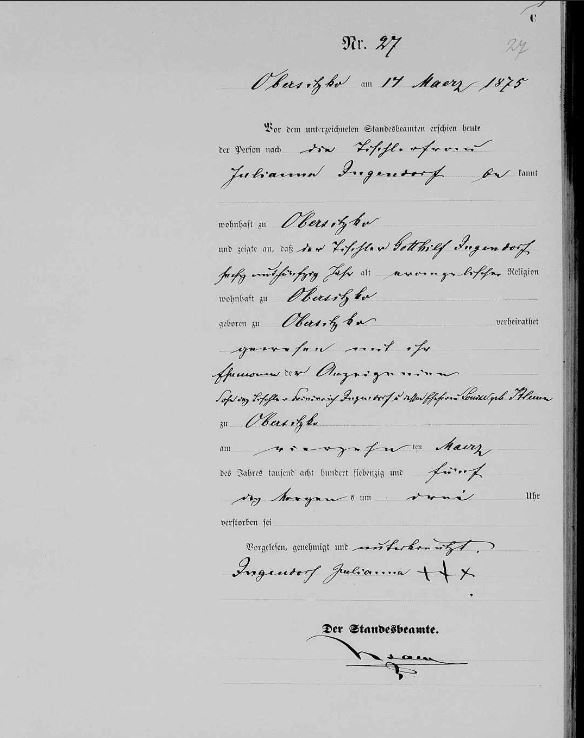 C
Nr. 27
27
Obersitzko am 14 Maerz 1875
Vor dem unterzeichneten Standesbeamten erschien heute
der Person nach die Tischlerfrau
Julianna Ingendorf be kannt
wohnhaft zu Obersitzko
und zeigte an, daß der Tischler Gotthilf Ingendorf
sechs und fünfzig Jahr alt evangelischer Religion
wohnhaft zu Obersitzko
geboren zu Obersitzko verheirathet
gewesen mit ihr
Ehemann der Anzeigenden
Sohn des Tischler Heinrich Ingendorf u dessen Ehefrau geb
zu Obersitzko
am vierzehn ten Maerz
des Jahres tausend acht hundert siebenzig und fünf
des Morgens um drei Uhr
verstorben sei
Vorgelesen, genehmigt und unterkreutzt.
Ingendorf Julianna +++
Der Standesbeamte.